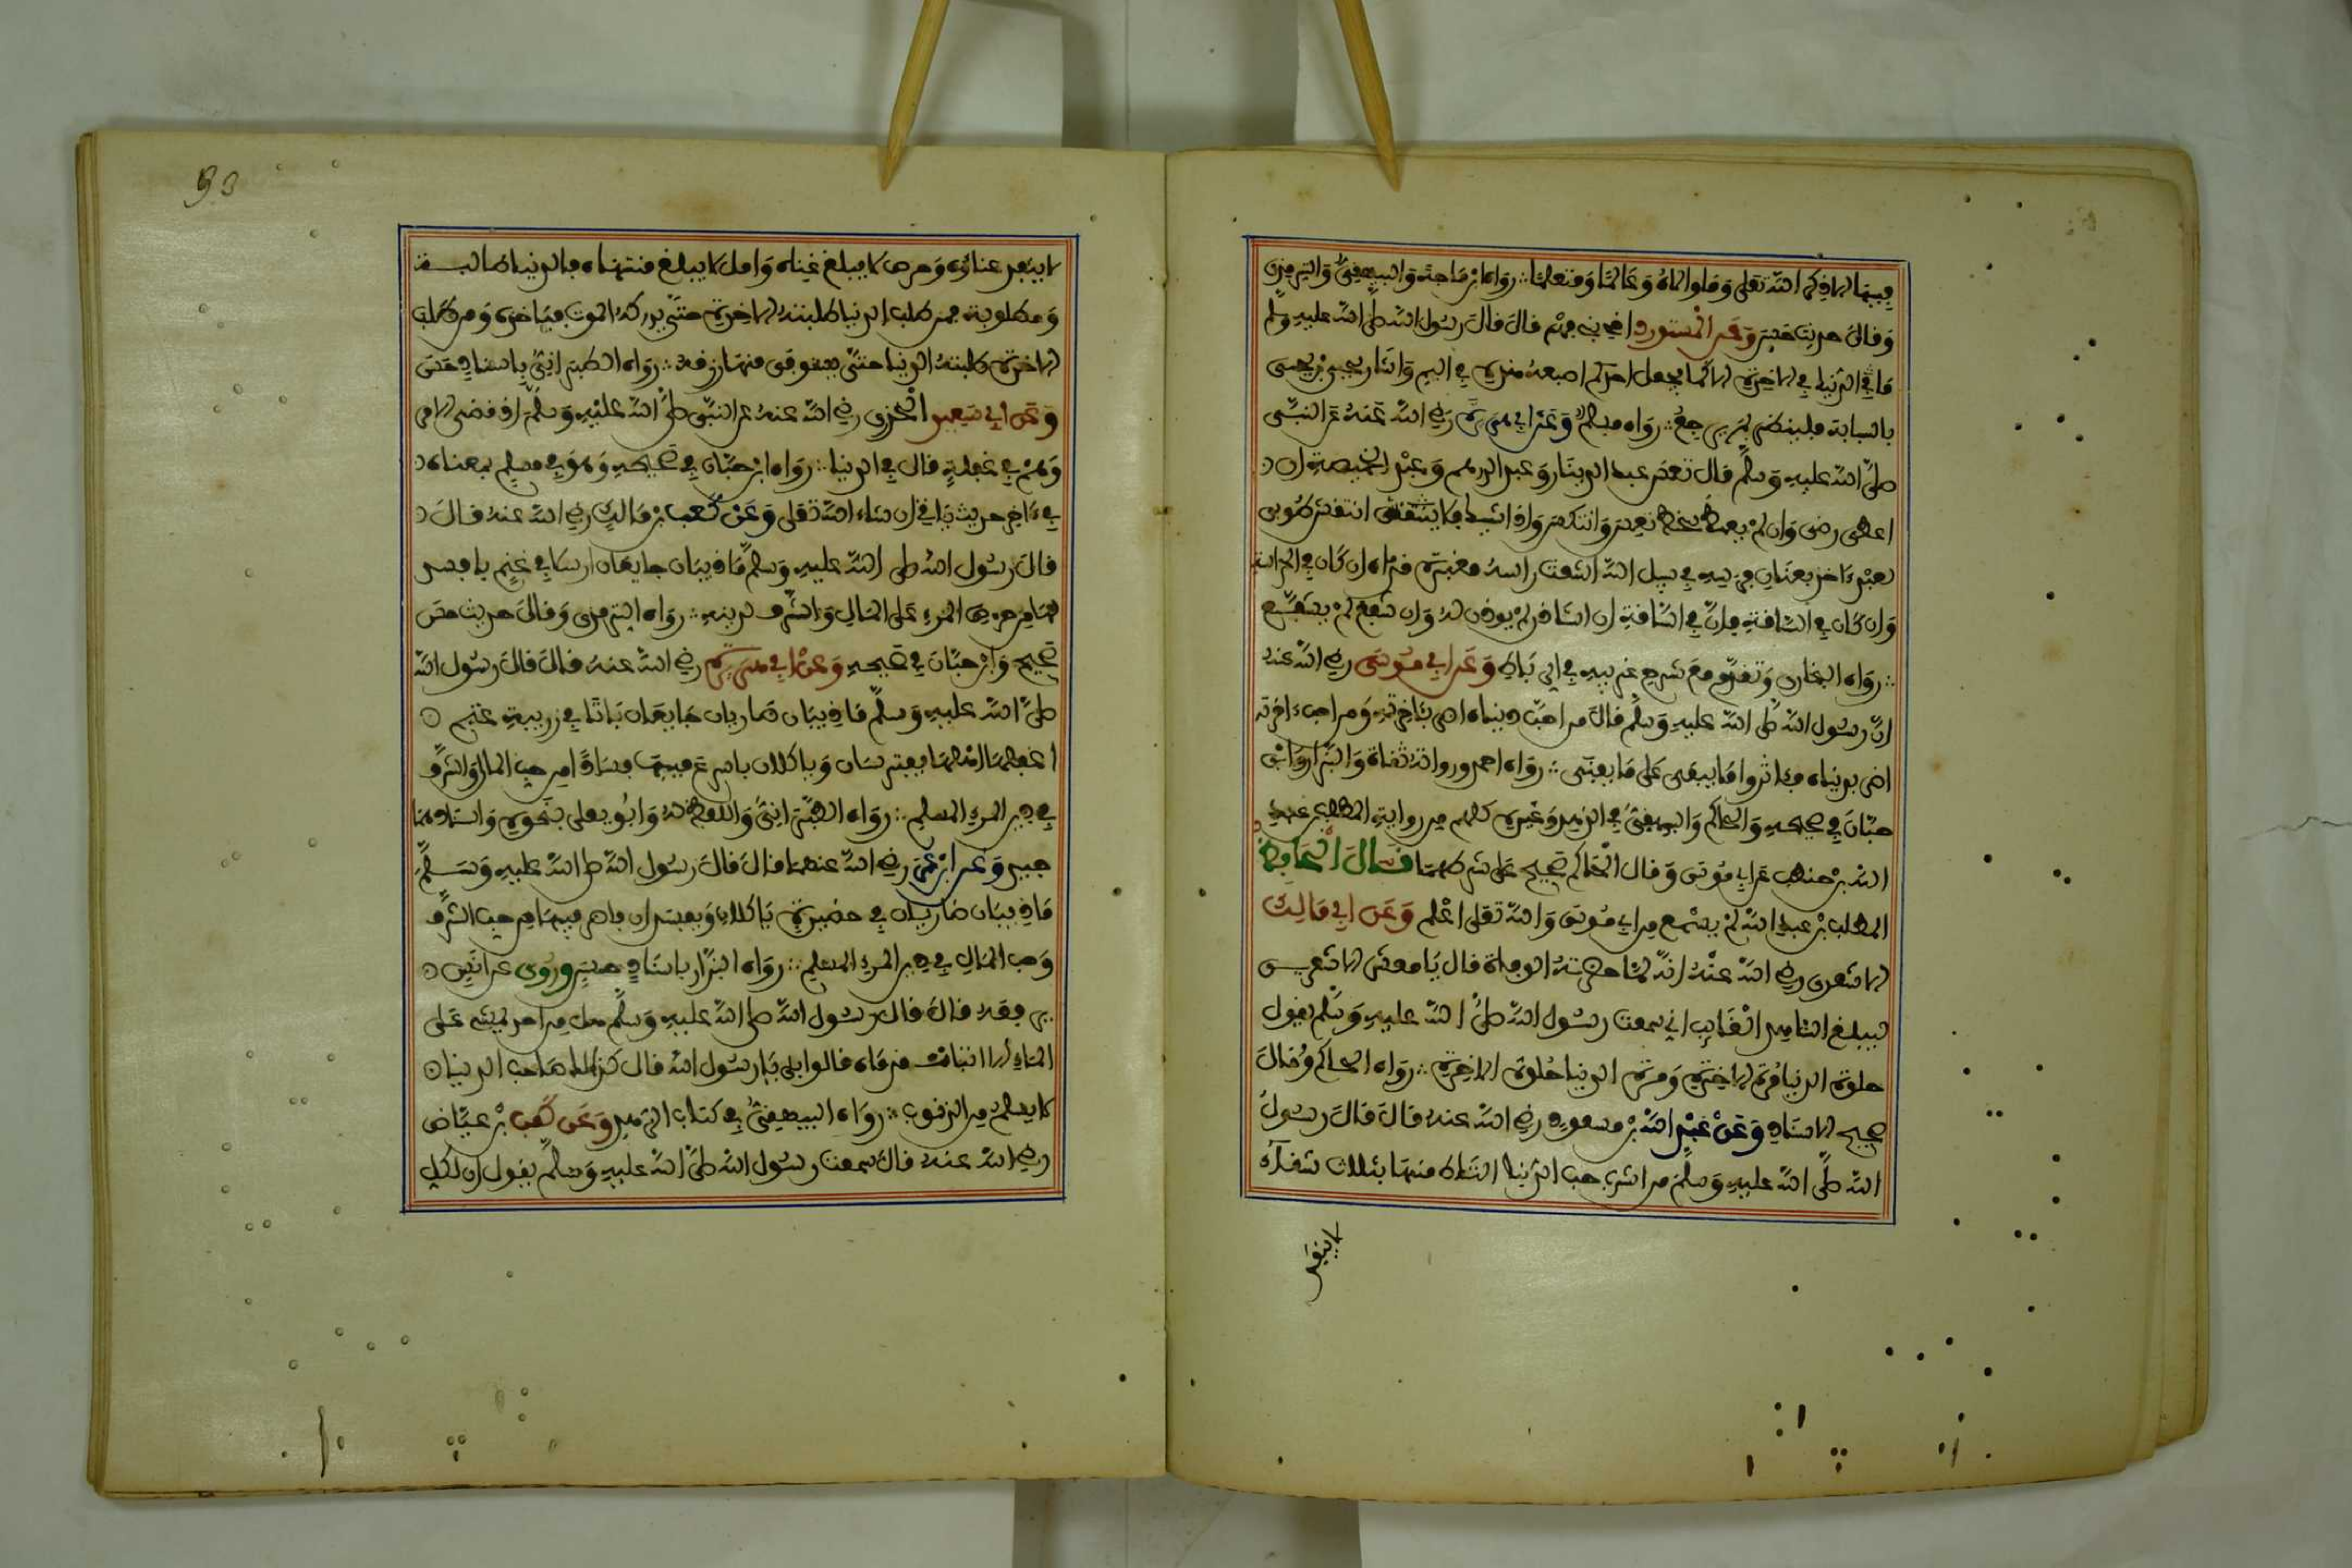 فيها الا ذكر الله تعلى وما والاه وعالما ومتعلما ∴ رواه ابن ماجة والبيهقي والترمذي
وقال حديث حسن وعن المستورد اخي بني فهر قال قال رسول الله صلى الله عليه وسلم
ما في الدنيا في الاخرة الا كما يجعل احدكم اصبعه هذه في اليم واشار يحيى بن يحيى
بالسبابة فلينظر بم يرجع ∴ رواه مسلم وعن ابي هريرة رضي الله عنه عن النبي
صلى الله عليه وسلم قال تعس عبد الدينار وعبد الدرهم وعبد الخميصة ان
اعطي رضي وان لم يعط سخط تعس وانتكس واذا شيك فلا انتقش طوبى
لعبد ءاخذ بعنان فرسه في سبيل الله اشعث راسه مغبرة قدماه ان كان في الحراسة
وان كان في الساقة كان في الساقة ان استاذن لم يوذن له وان شفع لم يشفع
∴ رواه البخاري وتقدم مع شرح غريبه في الرباط وعن ابي موسى رضي الله عنه
ان رسول الله صلى الله عليه وسلم قال من احب دنياه اضر بئاخرته ومن احب ءاخرته
اضر بدنياه فئاثروا ما يبقى على ما يفنى ∴ رواه احمد ورواته ثقاة والبزار وابن
حبان في صحيحه والحاكم والبيهقي في الزهد وغيره كلهم من رواية المطلب بن عبد
الله بن حنطب عن ابي موسى وقال الحاكم صحيح على شرطهما قال الحافظ
المطلب بن عبد الله لم يسمع من ابي موسى والله تعلى اعلم وعن ابي مالك
الاشعري رضي الله عنه انه لما حضرته الوفاة قال يا معشر الاشعريين
ليبلغ الشاهد الغائب اني سمعت رسول الله صلى الله عليه وسلم يقول
حلوة الدنيا مرة الاخرة ومرة الدنيا حلوة الاخرة ∴ رواه الحاكم وقال
صحيح الاسناد وعن عبد الله بن مسعود رضي الله عنه قال قال رسول
الله صلى الله عليه وسلم من اشرب حب الدنيا التاط منها بثلاث شقاء
لا ينفد
لا ينفد عناؤه وحرص لا يبلغ غناه وامل لا يبلغ منتهاه فالدنيا طالبة
ومطلوبة فمن طلب الدنيا طلبته الاخرة حتى يدركه الموت فياخذه ومن طلب
الاخرة طلبته الدنيا حتى يستوفي منها رزقه ∴ رواه الطبراني باسناد حسن
وعن ابي سعيد الخدري رضي الله عنه عن النبي صلى الله عليه وسلم اذ قضي الامر
وهم في غفلة قال في الدنيا ∴ رواه ابن حبان في صحيحه وهو في مسلم بمعناه
في ءاخر حديث ياتي ان شاء الله تعلى وعن كعب بن مالك رضي الله عنه قال
قال رسول الله صلى الله عليه وسلم ما ذيبان جايعان ارسلا في غنم بافسد
لها من حرص المرء على المال والشرف لدينه ∴ رواه الترمذي وقال حديث حسن
صحيح وابن حبان في صحيحه وعن ابي هريرة رضي الله عنه قال قال رسول الله
صلى الله عليه وسلم ما ذيبان ضاريان جايعان باتا في زريبة غنم
اغفلها اهلها يفترسان وياكلان باسرع فيها فسادا من حب المال والشرف
في دين المرء المسلم ∴ رواه الطبراني واللفظ له وابو يعلى بنحوه واسنادهما
جيد وعن ابن عمر رضي الله عنهما قال قال رسول الله صلى الله عليه وسلم
ما ذيبان ضاريان في حضيرة ياكلان ويفسدان باضر فيها من حب الشرف
وحب المال في دين المرء المسلم ∴ رواه البزار باسناد حسن وروي عن انس
يرفعه قال قال رسول الله صلى الله عليه وسلم هل من احد يمشي على
الماء الا ابتلت قدماه قالوا بلى يا رسول الله قال كذلك صاحب الدنيا
لا يسلم من الذنوب ∴ رواه البيهقي في كتاب الزهد وعن كعب بن عياض
رضي الله عنه قال سمعت رسول الله صلى الله عليه وسلم يقول ان لكل